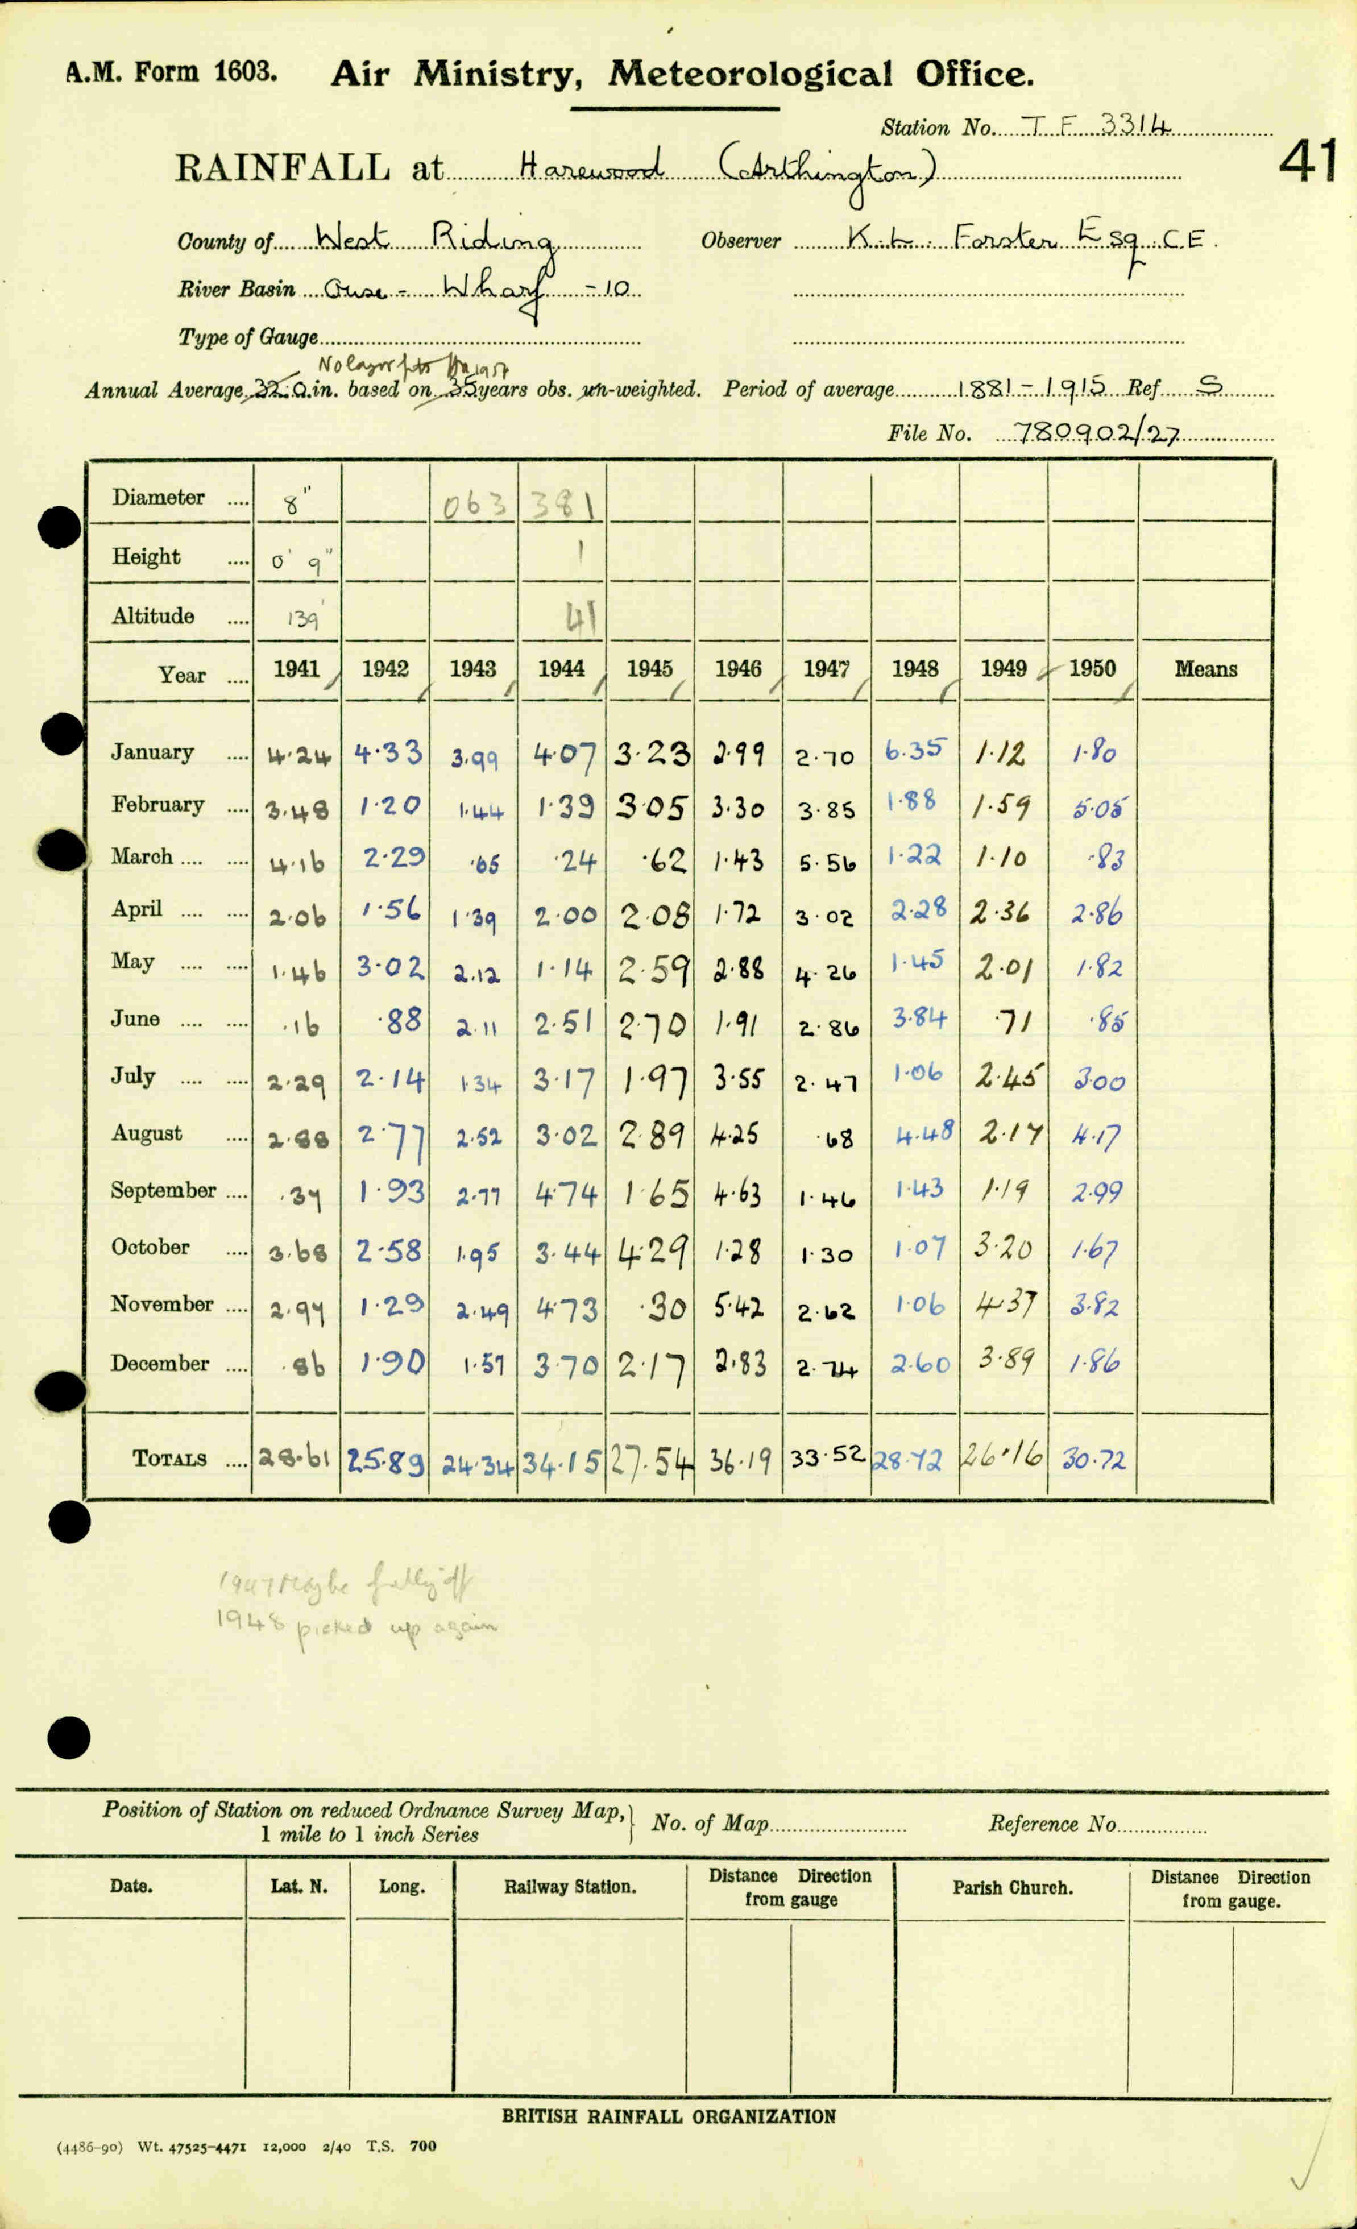 A.M. Form 1603. Air Ministry, Meteorological Office.
Station No. T F 3314
41
RAINFALL at Harewood (Arthington)
County of West Riding Observer K.L. Forster Esq. C E.
River Basin Ouse - Wharf - 10
Type of Gauge
Annual Average 32.0 in. based on 35 years obs. un-weighted. Period of average 1881-1915 Ref S
File No. 780902/27
Diameter .... 8" 063 381
Height .... 0' 9" 1
Altitude .... 139' 41
Year .... 1941 1942 1943 1944 1945 1946 1947 1948 1949 1950 Means
January .... 4.24 4.33 3.99 4.07 3.23 2.99 2.70 6.35 1.12 1.80
February .... 3.48 1.20 1.44 1.39 3.05 3.30 3.85 1.88 1.59 5.05
March .... .... 4.16 2.29 .65 .24 .62 1.43 5.56 1.22 1.10 .83
April .... .... 2.06 1.56 1.39 2.00 2.08 1.72 3.02 2.28 2.36 2.86
May .... .... 1.46 3.02 2.12 1.14 2.59 2.88 4.26 1.45 2.01 1.82
June .... .... .16 .88 2.11 2.51 2.70 1.91 2.86 3.84 .71 .85
July .... .... 2.29 2.14 1.34 3.17 1.97 3.55 2.47 1.06 2.45 3.00
August .... 2.88 2.77 2.52 3.02 2.89 4.25 .68 4.48 2.17 4.17
September .... .37 1.93 2.77 4.74 1.65 4.63 1.46 1.43 1.19 2.99
October .... 3.68 2.58 1.95 3.44 4.29 1.28 1.30 1.07 3.20 1.67
November .... 2.97 1.29 2.49 4.73 .30 5.42 2.62 1.06 4.37 3.82
December .... .86 1.90 1.57 3.70 2.17 2.83 2.74 2.60 3.89 1.86
TOTALS .... 28.61 25.89 24.34 34.15 27.54 36.19 33.52 28.72 26.16 30.72
1947 Maybe falling off
1948 picked up again
Position of Station on reduced Ordnance Survey Map, No. of Map Reference No.
1 mile to 1 inch Series
Date. Lat. N. Long. Railway Station. Distance Direction from gauge Parish Church. Distance Direction from gauge.
BRITISH RAINFALL ORGANIZATION
(4486-90) Wt. 47525-4471 12,000 2/40 T.S. 700